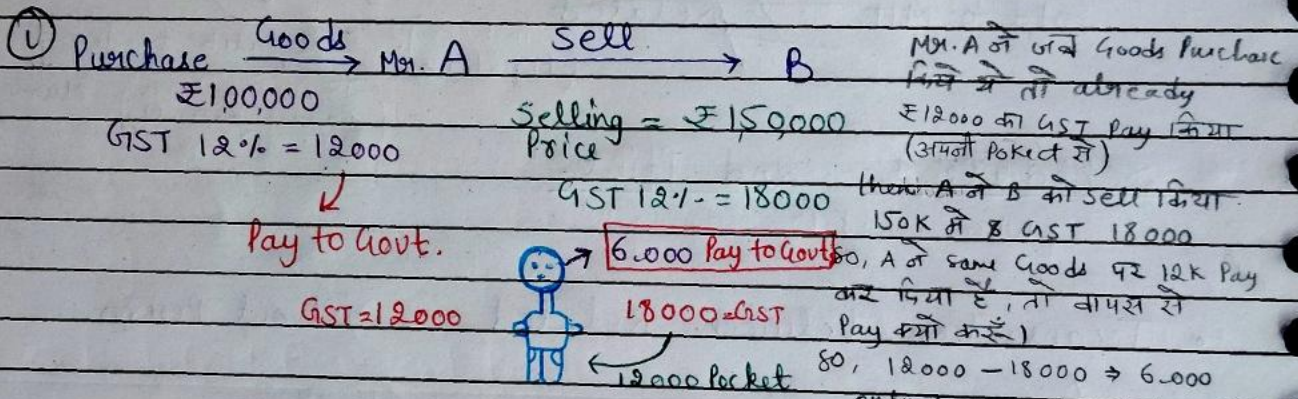 ① Purchase Goods → Mr. A Sell → B
₹1,00,000
GST 12% = 12000
Pay to Govt.
GST=12000
Selling Price = ₹1,50,000
GST 12% = 18000
6.000 Pay to Govt
18000=GST
12000 Pocket
Mr. A ने जब Goods Purchase
किये थे तो already
₹12000 का GST Pay किया
(अपनी Poket से)
then A ने B को Sell किया
150K में & GST 18000
so, A ने same Goods पर 12K Pay
कर दिया है, तो वापस से
Pay क्यो करूँ)
so, 12000 – 18000 ⇒ 6.000